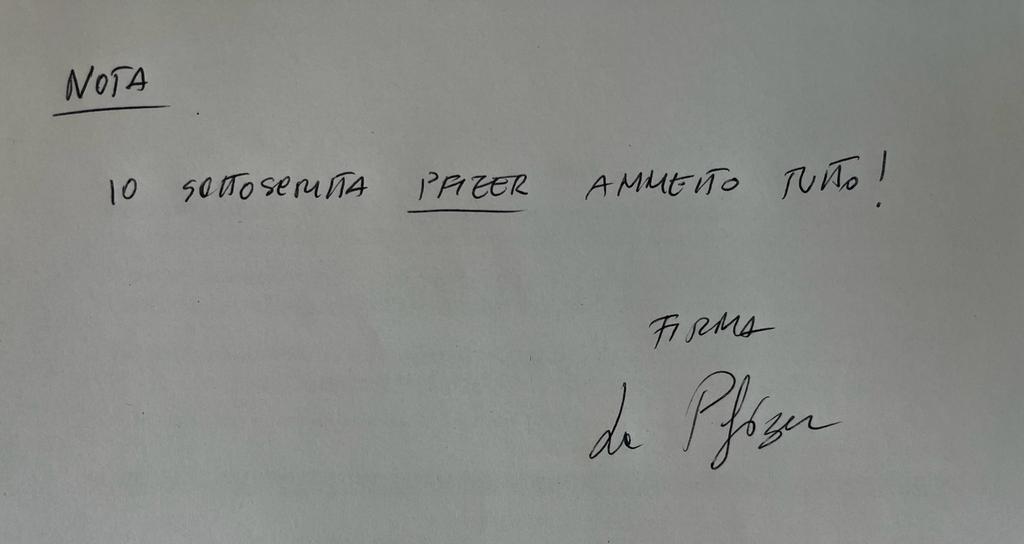 NOTA
IO SOTTOSCRITTA PFIZER AMMETTO TUTTO!
FIRMA
La Pfizer